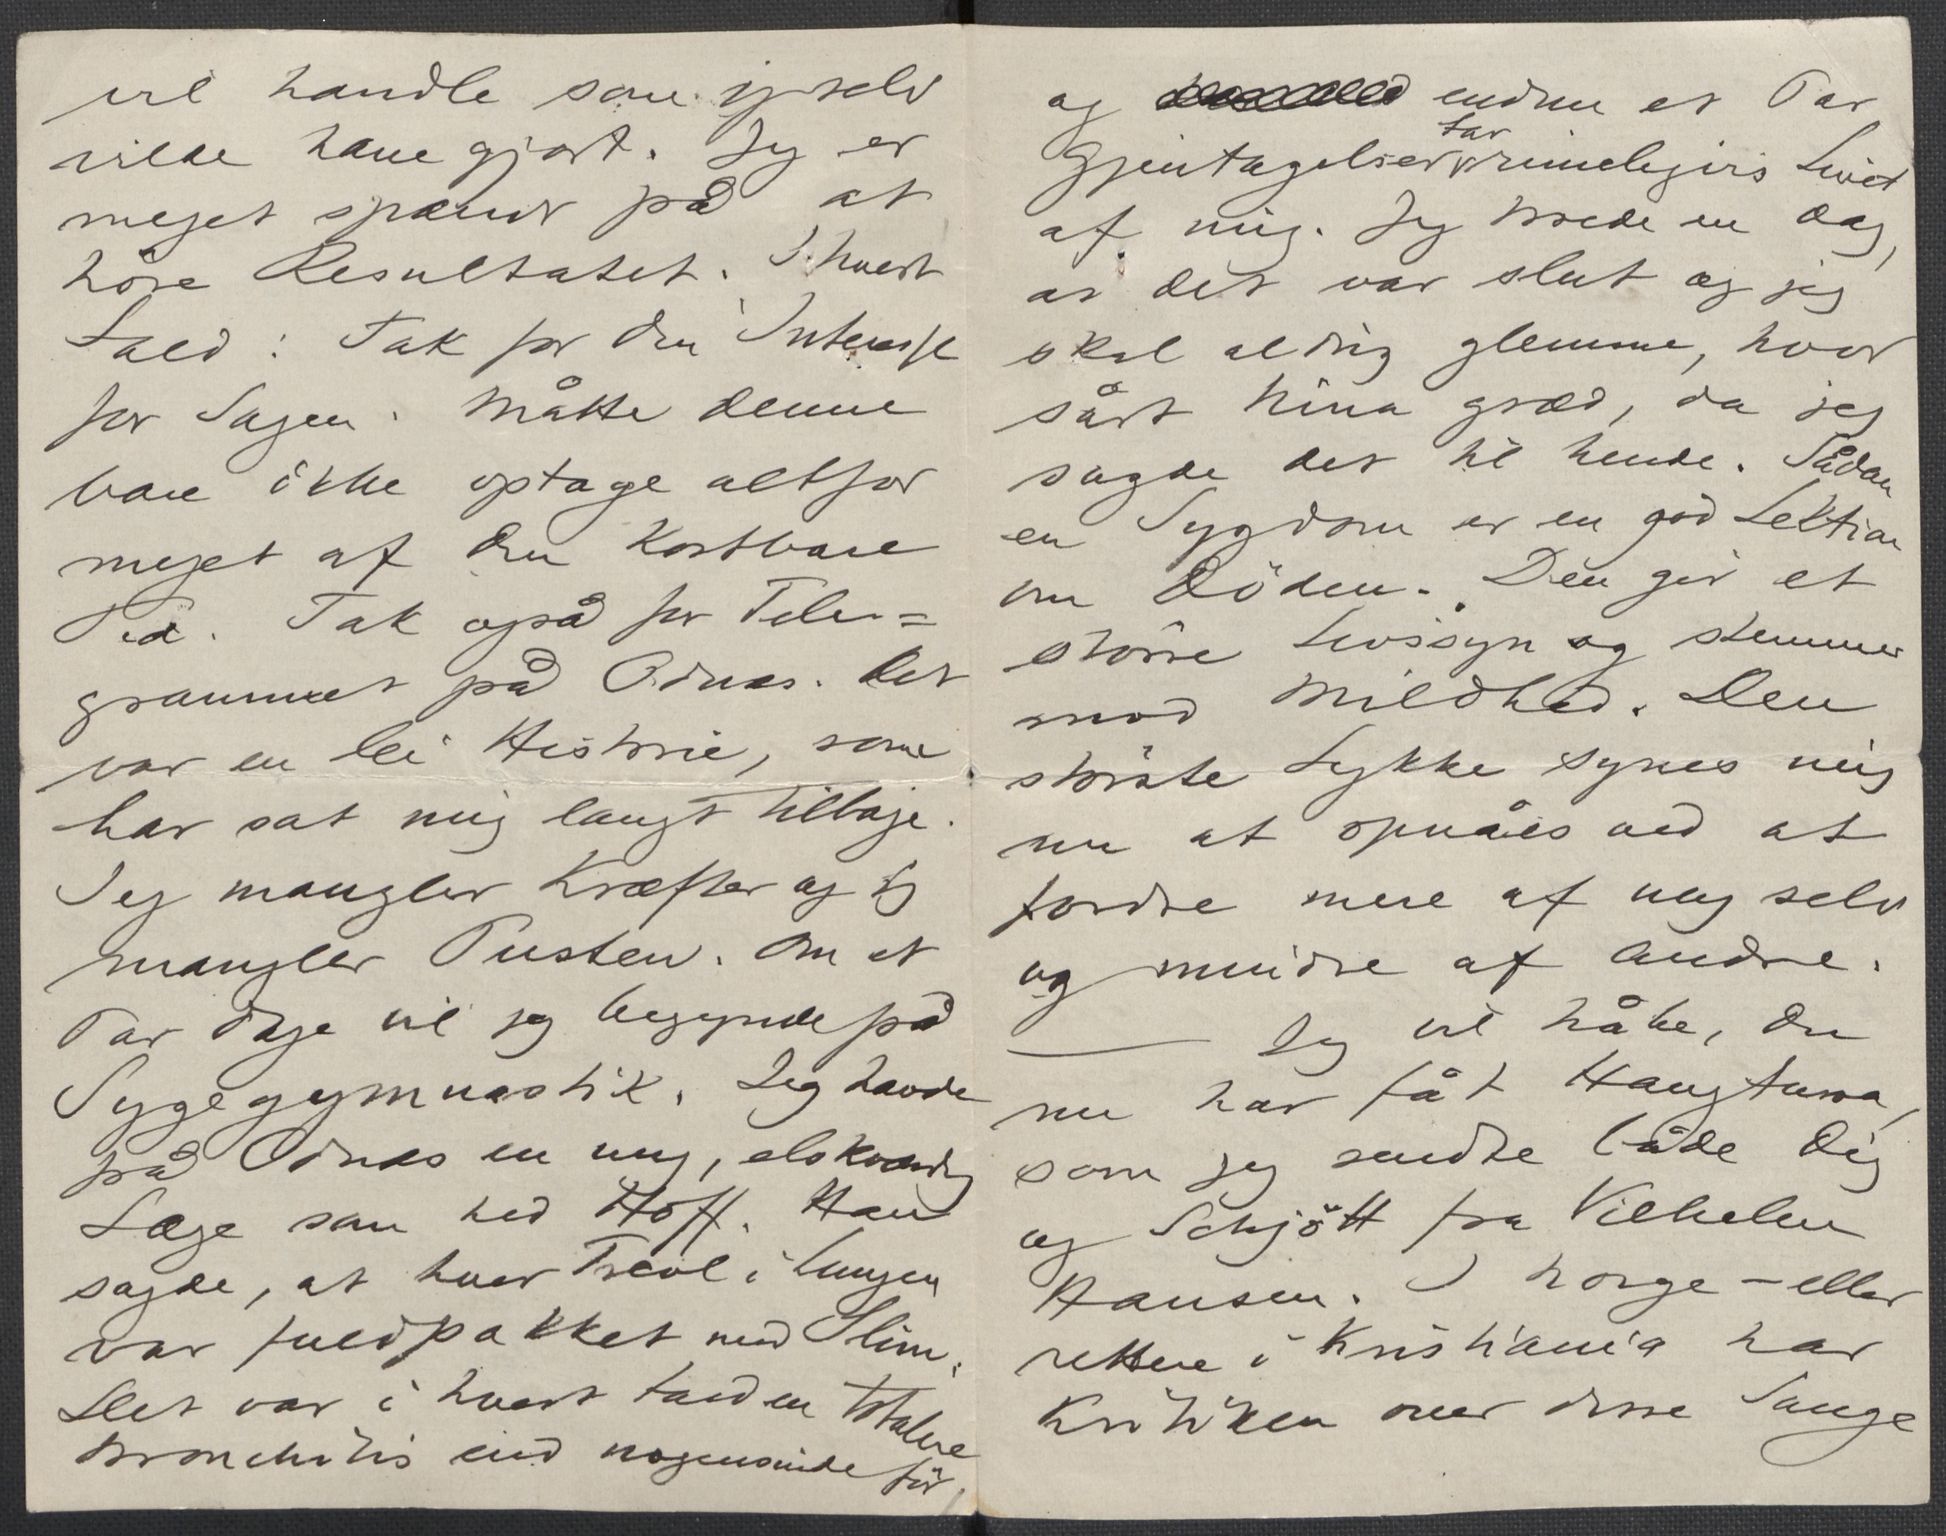 vil handle som jeg selv
vilde have gjort. Jeg er
meget spændt på at
höre Resultatet. I hvert
Fald: Tak for din Interesse
for Sagen. Måtte denne
bare ikke optage altfor
meget af din kostbare
Tid. Tak også for Tele=
grammet på Odnæs. Det
var en lei Historie, som
har sat mig langt tilbage.
Jeg mangler Kræfter og jeg
mangler Pusten. Om et
Par Dage vil jeg begynde på
Sygegymnastik. Jeg havde
på Odnæs en ung, elskværdig
Læge som hed Hoff. Han
sagde, at hver Trevl i Lungen
var fuldpakket med Slim.
Det var i hvert Fald en totalere
Bronchitis end nogensinde för,
og endnu et Par
Gjentagelser tar rimeligvis Livet
af mig. Jeg troede en Dag,
at det var slut og jeg
skal aldrig glemme, hvor
sårt Nina græd, da jeg
sagde det til hende. Sådan
en Sygdom er en god Lektion
om Döden. Den gir et
större Livssyn og stemmer
mod Mildhed. Den
störste Lykke synes mig
nu at opnåes ved at
fordre mere af mig selv
og mindre af Andre.
— Jeg vil håbe, Du
nu har fåt Haugtussa,
som jeg sendte både Dig
og Schjött fra Vilhelm
Hansen. I Norge – eller
rettere i Kristiania har
Kritiken over disse Sange